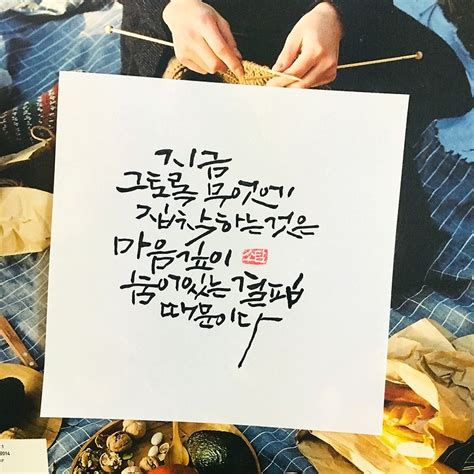 지금
그토록 무엇에
집착하는것은
마음깊이
숨어있는 결핍
때문이다
소담
2014